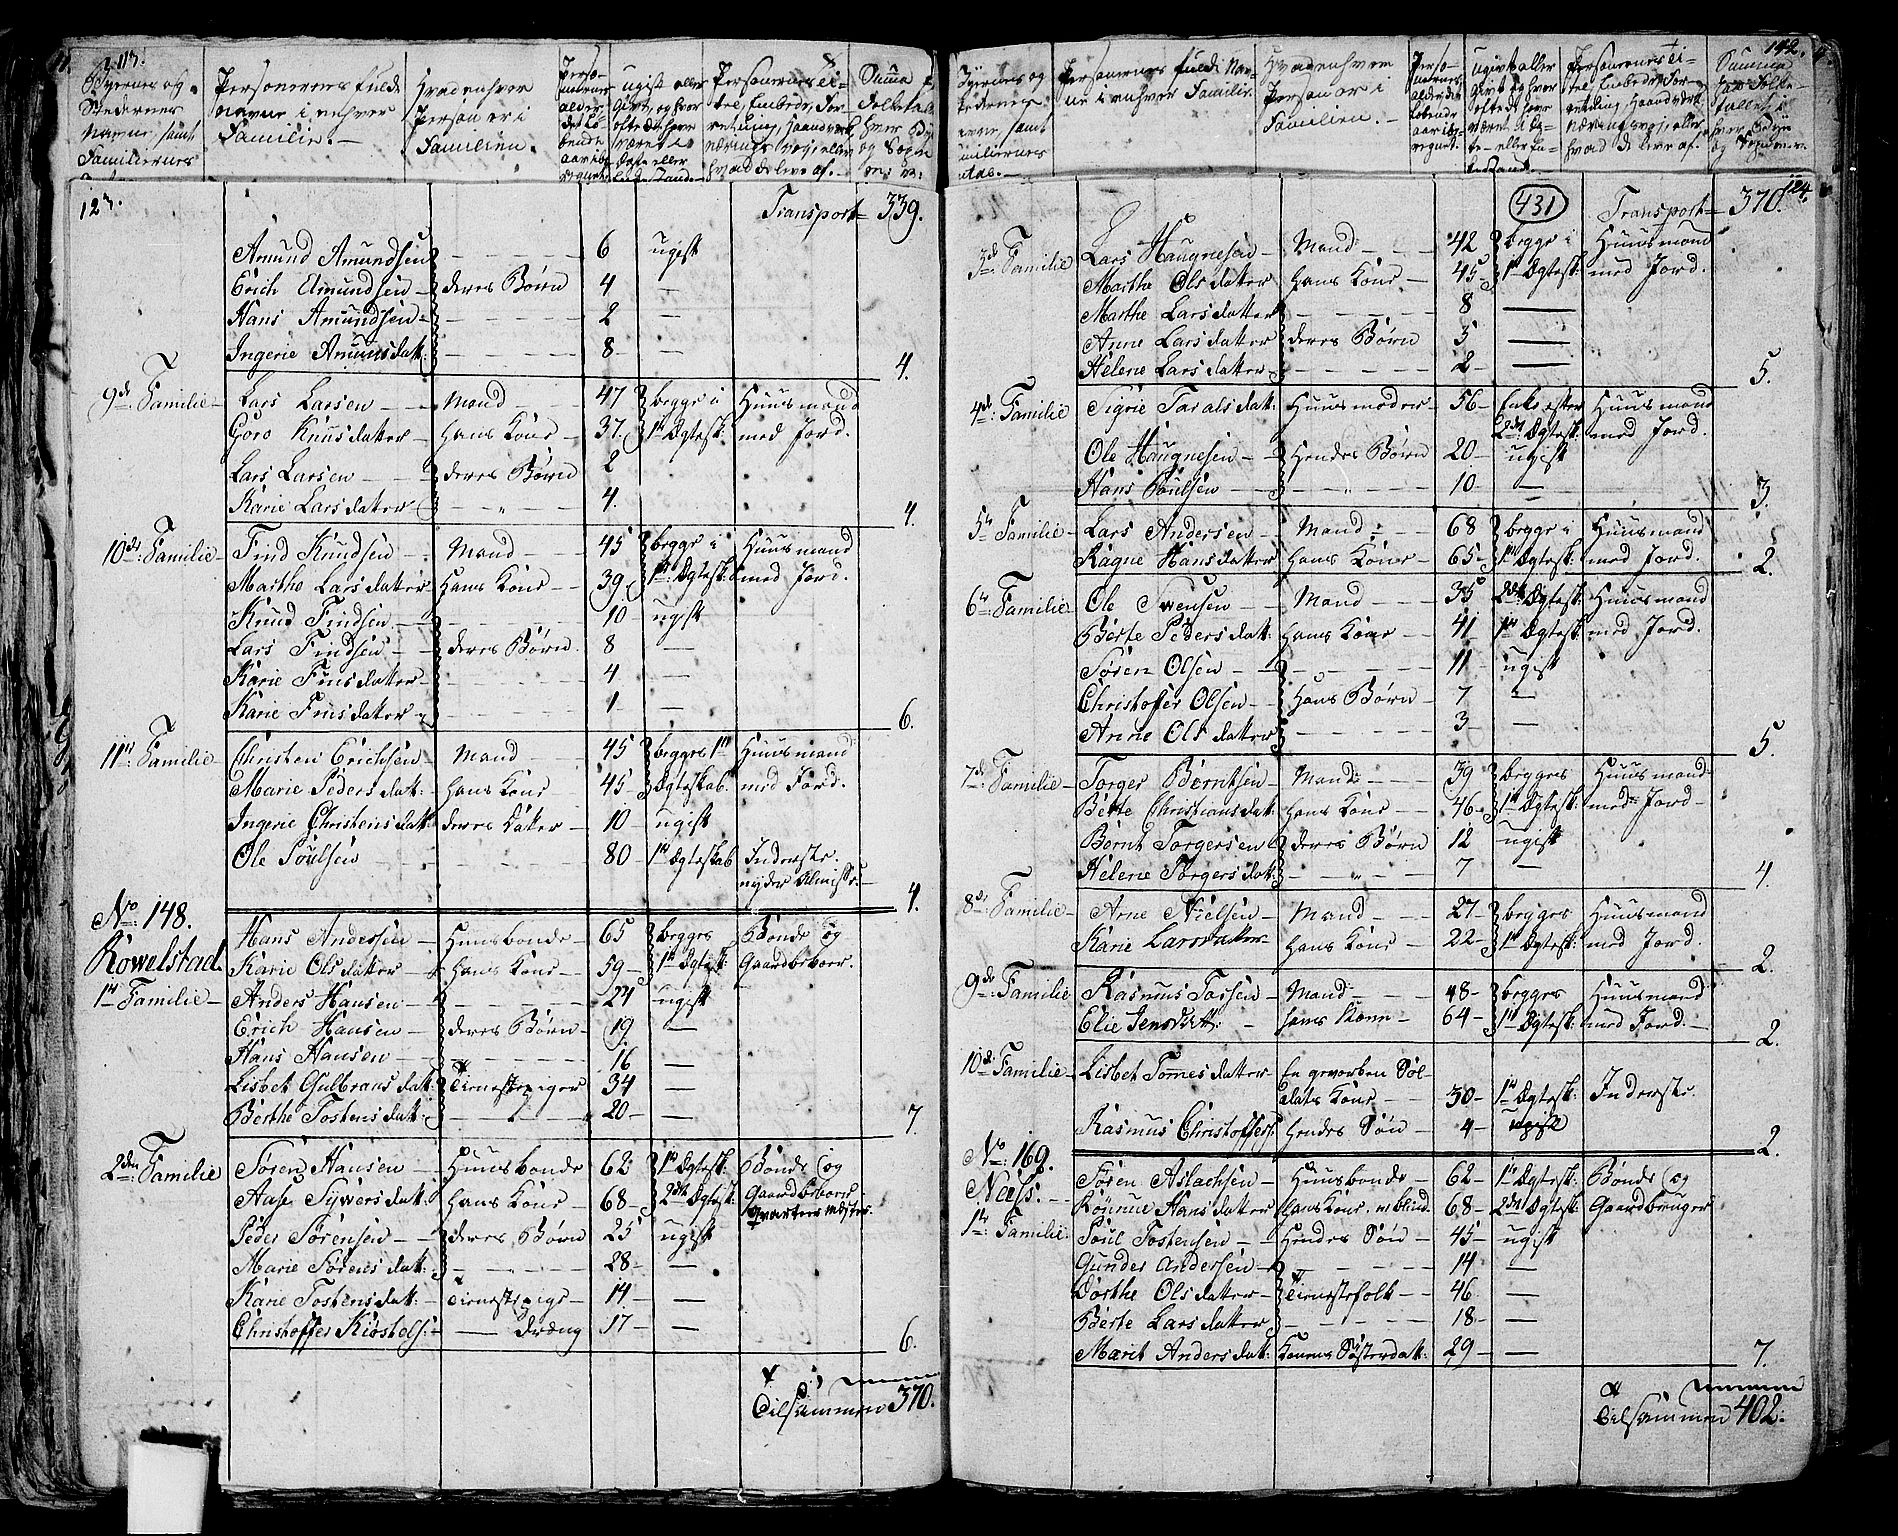 123.
Transport 339.
Amund Amundsen — 6 ugift
Erich Amundsen deres Børn 4 —
Hans Amundsen — 2 —
Ingerie Amunsdatt: — 8 —
4.
9de Familie Lars Larsen Mand 47 begge i Huusmand
Goro Knudsdatter hans Kone 37. 1te Ægtesk: med Jord.
Lars Larsen deres Børn 2
Karie Larsdatter — 4.
4.
10de Familie Find Knudsen Mand 45 begge i Huusmand
Marthe Larsdatter Hans Kone 39 1te Ægtesk: med Jord.
Knud Findsen — 10 ugift
Lars Findsen deres Børn 8 —
Karie Finsdatter — 4 —
Karie Finsdatter — 1 —
6.
11te Familie Christen Erichsen Mand 45 begges 1te Huusmand
Marie Pedersdat: hans Kone 45 Ægteskab. med Jord.
Ingerie Christensdat: deres Datter 10 ugift
Ole Poulsen — 80 1te Ægteskab Inderste.
nyder Almisse.
4.
No 148.
Hans Andersen Huusbonde 65 begges Bonde og
Rowelstad. Karie Olsdatter hans Kone 59 1te Ægtesk: Gaardbeboer.
1te Familie Anders Hansen — 24 ugift
Erich Hansen deres Børn 19. —
Hans Hansen — 16 —
Lisbet Gulbransdat: Tienestepiger 34 —
Berthe Tostensdat: — 20 —
7.
2den Familie Søren Hansen Huusbonde 62 1te Ægtesk: Bonde og
Aase Sywersdat: hans Kone 68 2det Ægtesk: Gaardbeboer
Qvarteermester
Peder Sørensen deres Børn 25 ugift
Marie Sørensdat: — 28 —
Karie Tostensdat: Tienestepige 14 —
Christoffer Kiøstels: — dræng 17 —
6.
Tilsammen 370.
142.
124.
431
Transport 370.
3de Familie Lars Haugnesen Mand 42 begge i Huusmand
Marthe Olsdatter hans Kone 45 1te Ægtesk: med Jord.
Marthe Larsdatter — 8 —
Anne Larsdatter deres Børn 5 —
Helene Larsdatter — 2 —
5.
4de Familie Sigrie Taralsdat: Huusmoder 56 Enke efter Huusmand
2det Ægtesk: med Jord.
Ole Haugnesen Hendes Børn 20 ugift
Hans Poulsen — 10 —
3.
5te Familie Lars Andersen Mand 68 begge i Huusmand
Ragne Hansdatter hans Kone 65 1te Ægtesk: med Jord.
2.
6te Familie Ole Swensen Mand 35 2det Ægtesk: Huusmand
Berte Pedersdat: hans Kone 41 1te Ægtesk: med Jord.
Søren Olsen — 11 ugift
Christoffer Olsen Hans Børn 7 —
Anne Olsdatter — 3 —
5.
7de Familie Torger Berntsen Mand 39 begges Huusmand
Berte Christiansdat: hans Kone 46 1te Ægtesk: med Jord
Bernt Torgersen deres Børn 12 ugift
Helene Torgersdat: — 7 —
4.
8de Familie Arne Nielsen Mand 27 begges Huusmand
Karie Larsdatter hans Kone 22 1te Ægtesk: med Jord.
2.
9de Familie Rasmus Tossen Mand 48 begges Huusmand
Elie Jensdatt: hans Kone 64 1te Ægtesk: med Jord.
2.
10de Familie Lisbet Tommesdatter En gevorben Sol-
dats Kone 30 1te Ægtesk: Inderste.
Rasmus Christoffers: Hendes Søn 4 ugift
2.
No 169.
Næss. Søren Aslachsen Huusbonde 62 1te Ægtesk: Bonde og
Rønnue Hansdatter Hans Kone, er blind 68 2det Ægtesk: Gaardbruger
1te Familie Poul Tostensen Hendes Søn 45 ugift
Gunder Andersen — 14 —
Dorthe Olsdatter Tienestefolk 46 —
Berte Larsdatter — 18 —
Marit Andersdat: Konens Søsterdat: 29 —
7.
Tilsammen 402.